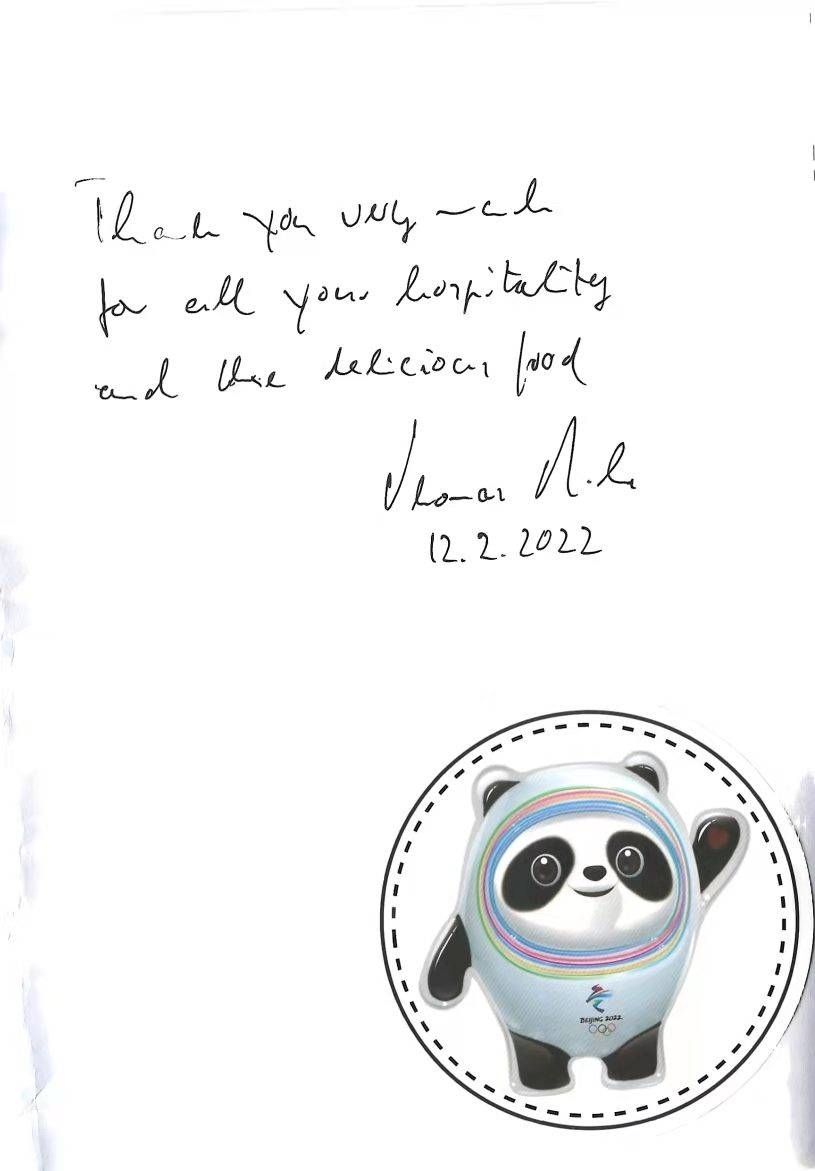 Thank you very much
for all your hospitality
and the delicious food
Thomas
12.2.2022
BEIJING 2022